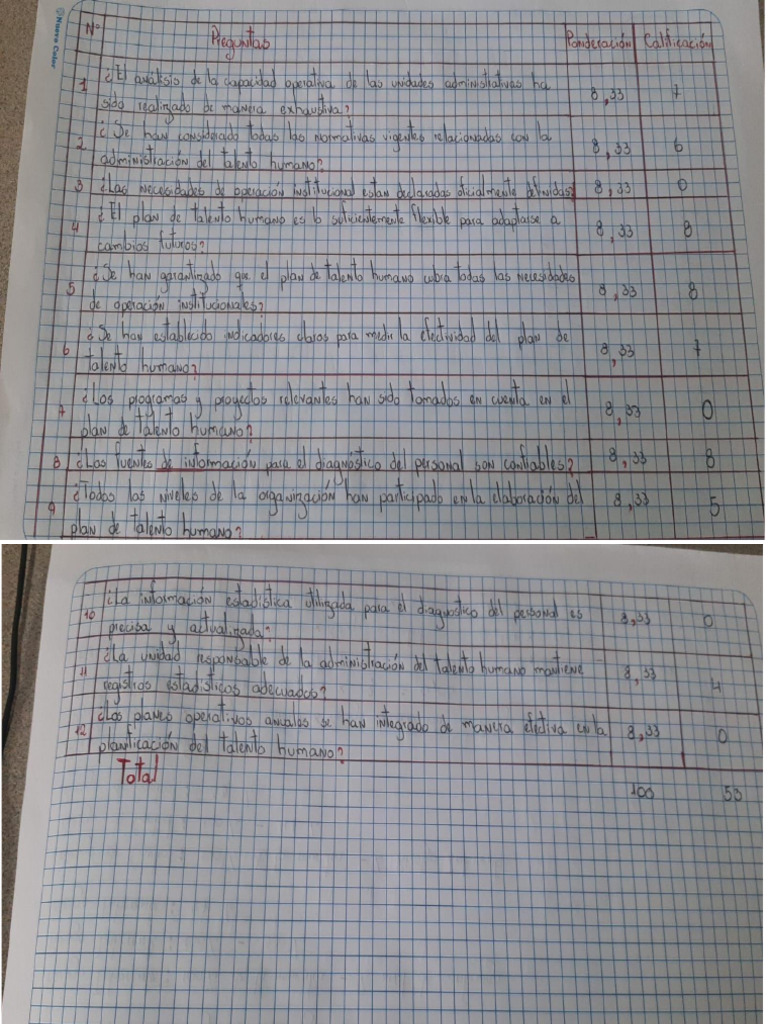 Nuevo Color
N° Preguntas Ponderación Calificación
1 ¿El análisis de la capacidad operativa de las unidades administrativas ha
sido realizado de manera exhaustiva? 8,33 7
2 ¿Se han considerado todas las normativas vigentes relacionadas con la
administración del talento humano? 8,33 6
3 ¿Las necesidades de operación institucional estan declaradas oficialmente definidas? 8,33 0
4 ¿El plan de talento humano es lo suficientemente flexible para adaptarse a
cambios futuros? 8,33 8
5 ¿Se han garantizado que el plan de talento humano cubra todas las necesidades
de operación institucionales? 8,33 8
6 ¿Se han establecido indicadores claros para medir la efectividad del plan de
talento humano? 8,33 7
7 ¿Los programas y proyectos relevantes han sido tomados en cuenta en el
plan de talento humano? 8,33 0
8 ¿Las fuentes de información para el diagnóstico del personal son confiables? 8,33 8
9 ¿Todos los niveles de la organización han participado en la elaboración del
plan de talento humano? 8,33 5
10 ¿La información estadística utilizada para el diagnostico del personal es
precisa y actualizada? 8,33 0
11 ¿La unidad responsable de la administración del talento humano mantiene
registros estadísticos adecuados? 8,33 4
12 ¿Los planes operativos anuales se han integrado de manera efectiva en la
planificación del talento humano? 8,33 0
Total 100 53